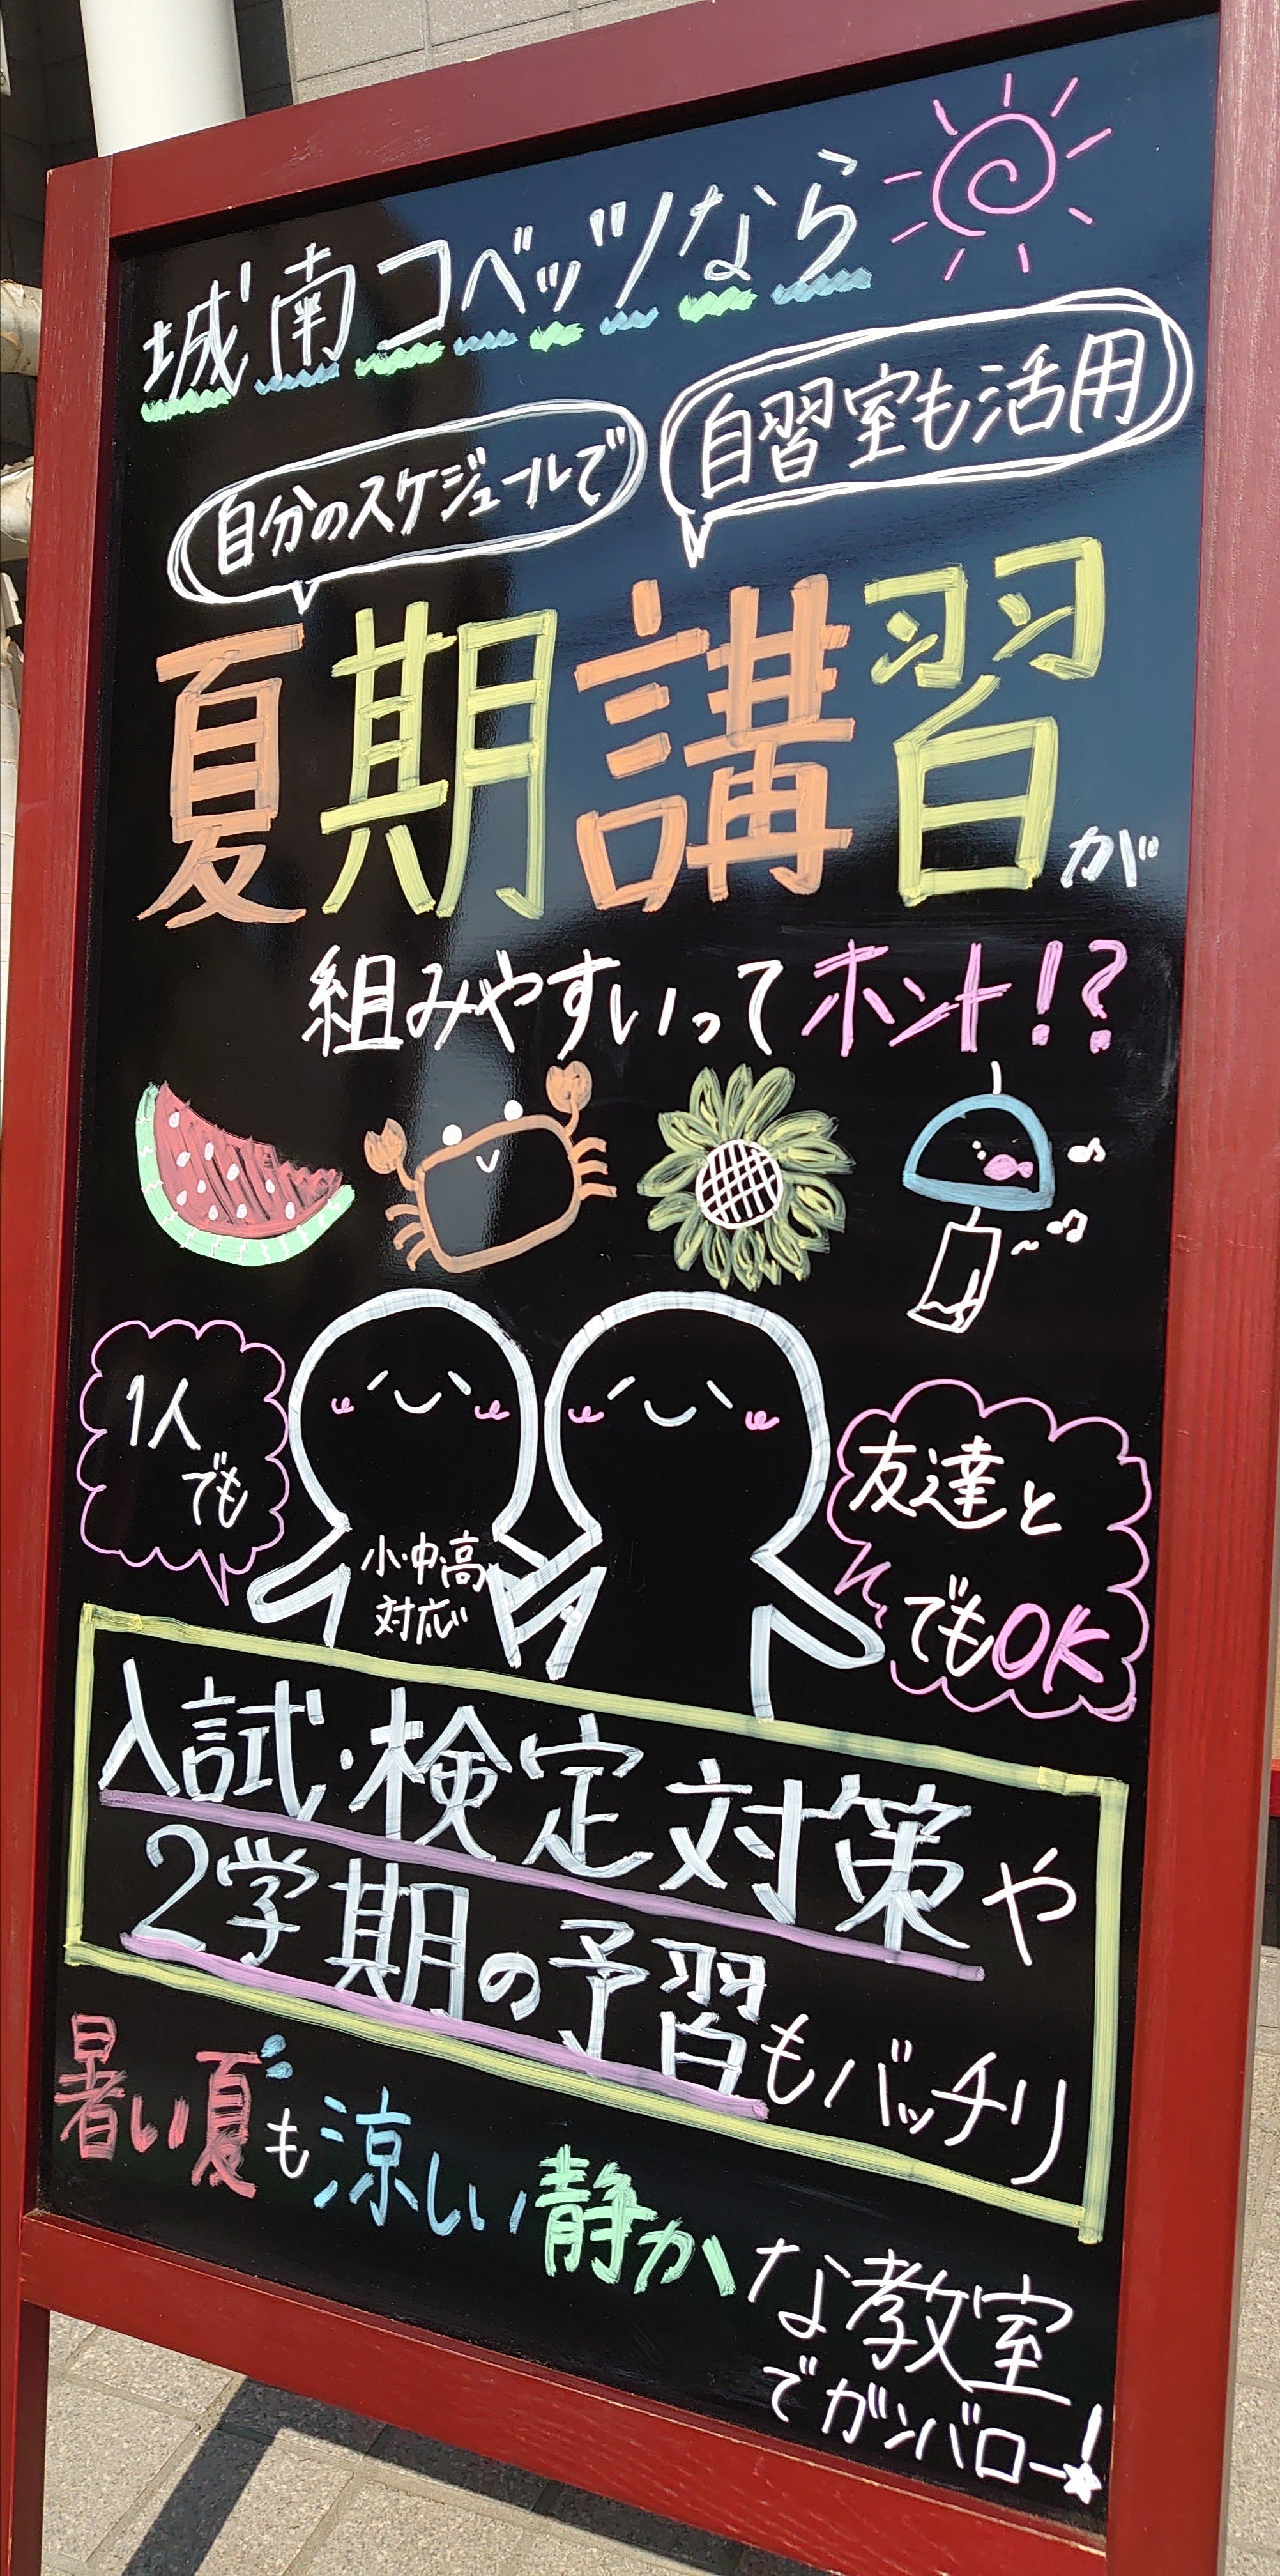 城南コベッツなら
自分のスケジュールで
自習室も活用
夏期講習が
組みやすいってホント!?
1人
でも
小・中・高
対応
友達と
でもOK
入試・検定対策や
2学期の予習もバッチリ
暑い夏も涼しい静かな教室
でガンバロー!